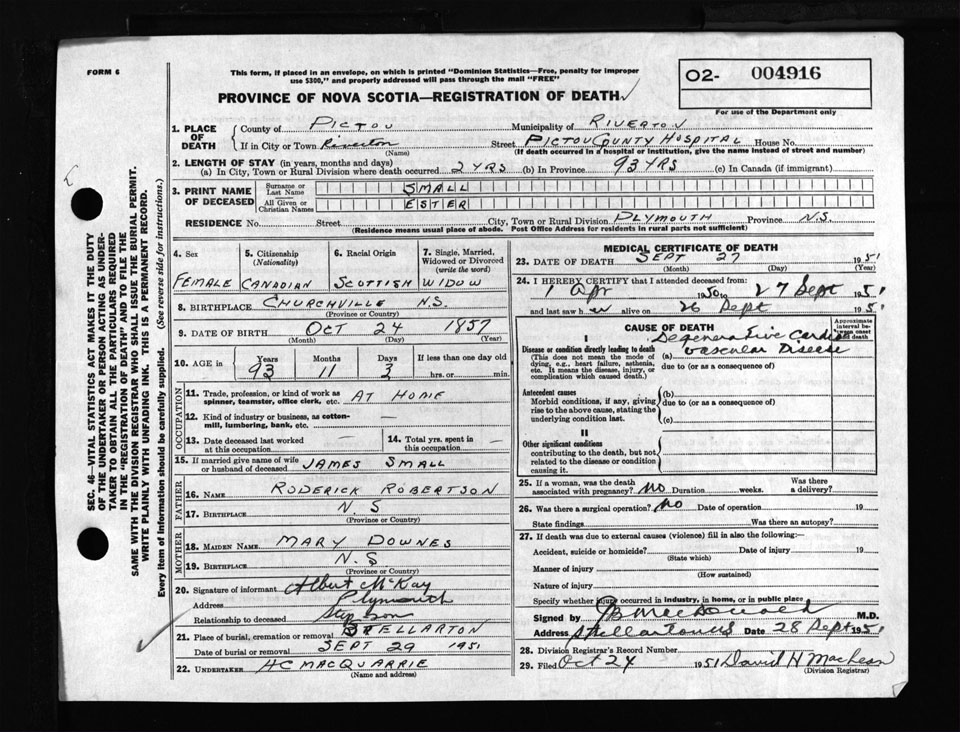 FORM 6
This form, if placed in an envelope, on which is printed "Dominion Statistics—Free, penalty for improper
use $300," and properly addressed will pass through the mail "FREE"
02- 004916
For use of the Department only
PROVINCE OF NOVA SCOTIA—REGISTRATION OF DEATH
1. PLACE OF DEATH
County of PICTOU Municipality of RIVERTON
If in City or Town Riverton (Name) Street PICTOU COUNTY HOSPITAL House No.
(If death occurred in a hospital or institution, give the name instead of street and number)
2. LENGTH OF STAY (in years, months and days)
(a) In City, Town or Rural Division where death occurred 2 YRS (b) In Province 93 YRS (c) In Canada (if immigrant)
3. PRINT NAME OF DECEASED
Surname or Last Name SMALL
All Given or Christian Names ESTER
RESIDENCE No. Street City, Town or Rural Division PLYMOUTH Province N.S.
(Residence means usual place of abode. Post Office Address for residents in rural parts not sufficient)
4. Sex FEMALE
5. Citizenship (Nationality) CANADIAN
6. Racial Origin SCOTTISH
7. Single, Married, Widowed or Divorced (write the word) WIDOW
8. BIRTHPLACE CHURCHVILLE N.S.
(Province or Country)
9. DATE OF BIRTH OCT 24 1857
(Month) (Day) (Year)
10. AGE IN Years 93 Months 11 Days 3 If less than one day old hrs. or min.
OCCUPATION
11. Trade, profession, or kind of work as spinner, teamster, office clerk, etc. AT HOME
12. Kind of industry or business, as cotton-mill, lumbering, bank, etc. —
13. Date deceased last worked at this occupation —
14. Total yrs. spent in this occupation —
15. If married give name of wife or husband of deceased JAMES SMALL
FATHER
16. NAME RODERICK ROBERTSON
17. BIRTHPLACE N.S
(Province or Country)
MOTHER
18. MAIDEN NAME MARY DOWNES
19. BIRTHPLACE N.S
(Province or Country)
20. Signature of informant Albert McKay
Address Plymouth
Relationship to deceased Step son
21. Place of burial, cremation or removal STELLARTON
Date of burial or removal SEPT 29 1951
22. UNDERTAKER HC MACQUARRIE
(Name and address)
MEDICAL CERTIFICATE OF DEATH
23. DATE OF DEATH SEPT 27 1951
(Month) (Day) (Year)
24. I HEREBY CERTIFY that I attended deceased from:
1 Apr 1950 to 27 Sept 1951
and last saw her alive on 26 Sept 1951
CAUSE OF DEATH
Approximate interval between onset and death
I
Disease or condition directly leading to death
(This does not mean the mode of dying, e.g., heart failure, asthenia, etc. It means the disease, injury, or complication which caused death.)
(a) Degenerative Cardio vascular Disease
due to (or as a consequence of)
Antecedent causes
Morbid conditions, if any, giving rise to the above cause, stating the underlying condition last.
(b)
due to (or as a consequence of)
(c)
II
Other significant conditions
contributing to the death, but not related to the disease or condition causing it.
25. If a woman, was the death associated with pregnancy? No Duration weeks. Was there a delivery?
26. Was there a surgical operation? No Date of operation 19
State findings Was there an autopsy?
27. If death was due to external causes (violence) fill in also the following:—
Accident, suicide or homicide? Date of injury 19
(State which)
Manner of injury
(How sustained)
Nature of injury
Specify whether injury occurred in industry, in home, or in public place
Signed by MacDonald M.D.
Address Stellarton NS Date 28 Sept 1951
28. Division Registrar's Record Number
29. Filed Oct 24 1951 David H MacLean
(Division Registrar)
SEC. 46—VITAL STATISTICS ACT MAKES IT THE DUTY
OF THE UNDERTAKER OR PERSON ACTING AS UNDER-
TAKER TO OBTAIN ALL THE PARTICULARS REQUIRED
IN THE "REGISTRATION OF DEATH" AND TO FILE THE
SAME WITH THE DIVISION REGISTRAR WHO SHALL ISSUE THE BURIAL PERMIT.
WRITE PLAINLY WITH UNFADING INK. THIS IS A PERMANENT RECORD.
Every item of information should be carefully supplied. (See reverse side for instructions.)